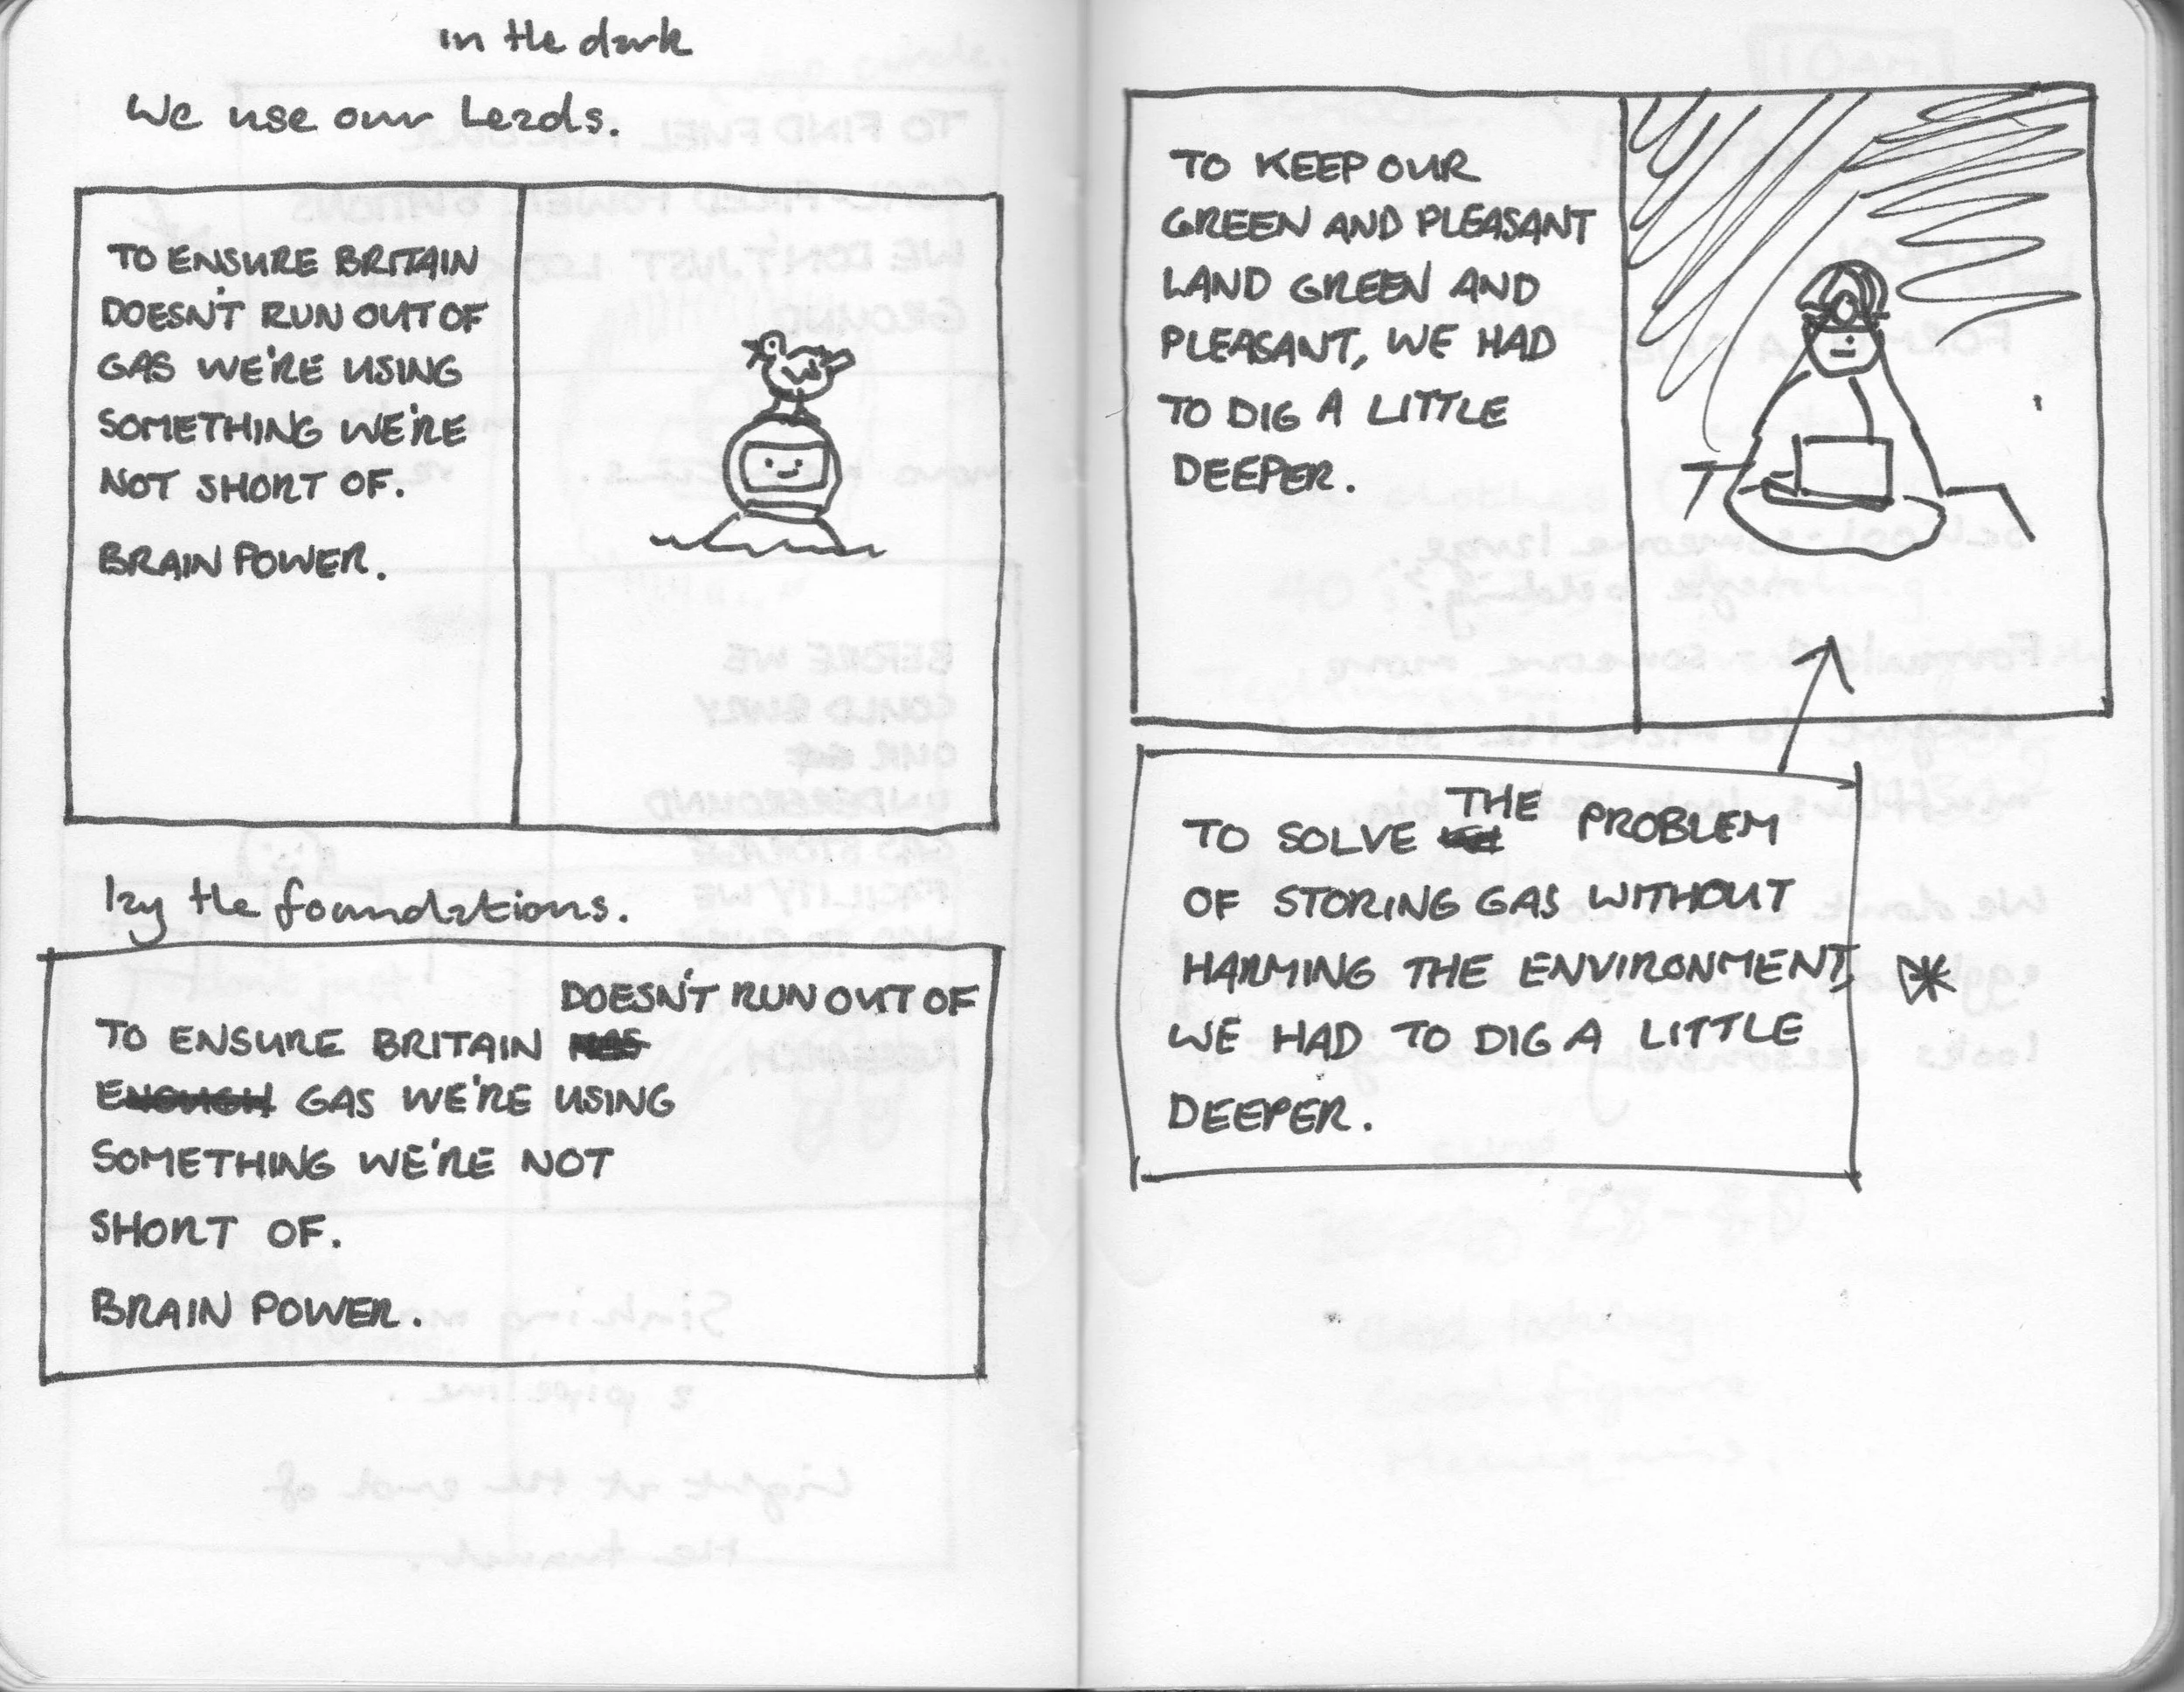 in the dark
We use our heads.
TO ENSURE BRITAIN
DOESN'T RUN OUT OF
GAS WE'RE USING
SOMETHING WE'RE
NOT SHORT OF.
BRAIN POWER.
lay the foundations.
DOESN'T RUN OUT OF
TO ENSURE BRITAIN HAS
ENOUGH GAS WE'RE USING
SOMETHING WE'RE NOT
SHORT OF.
BRAIN POWER.
TO KEEP OUR
GREEN AND PLEASANT
LAND GREEN AND
PLEASANT, WE HAD
TO DIG A LITTLE
DEEPER.
THE
TO SOLVE PROBLEM
OF STORING GAS WITHOUT
HARMING THE ENVIRONMENT,
WE HAD TO DIG A LITTLE
DEEPER.